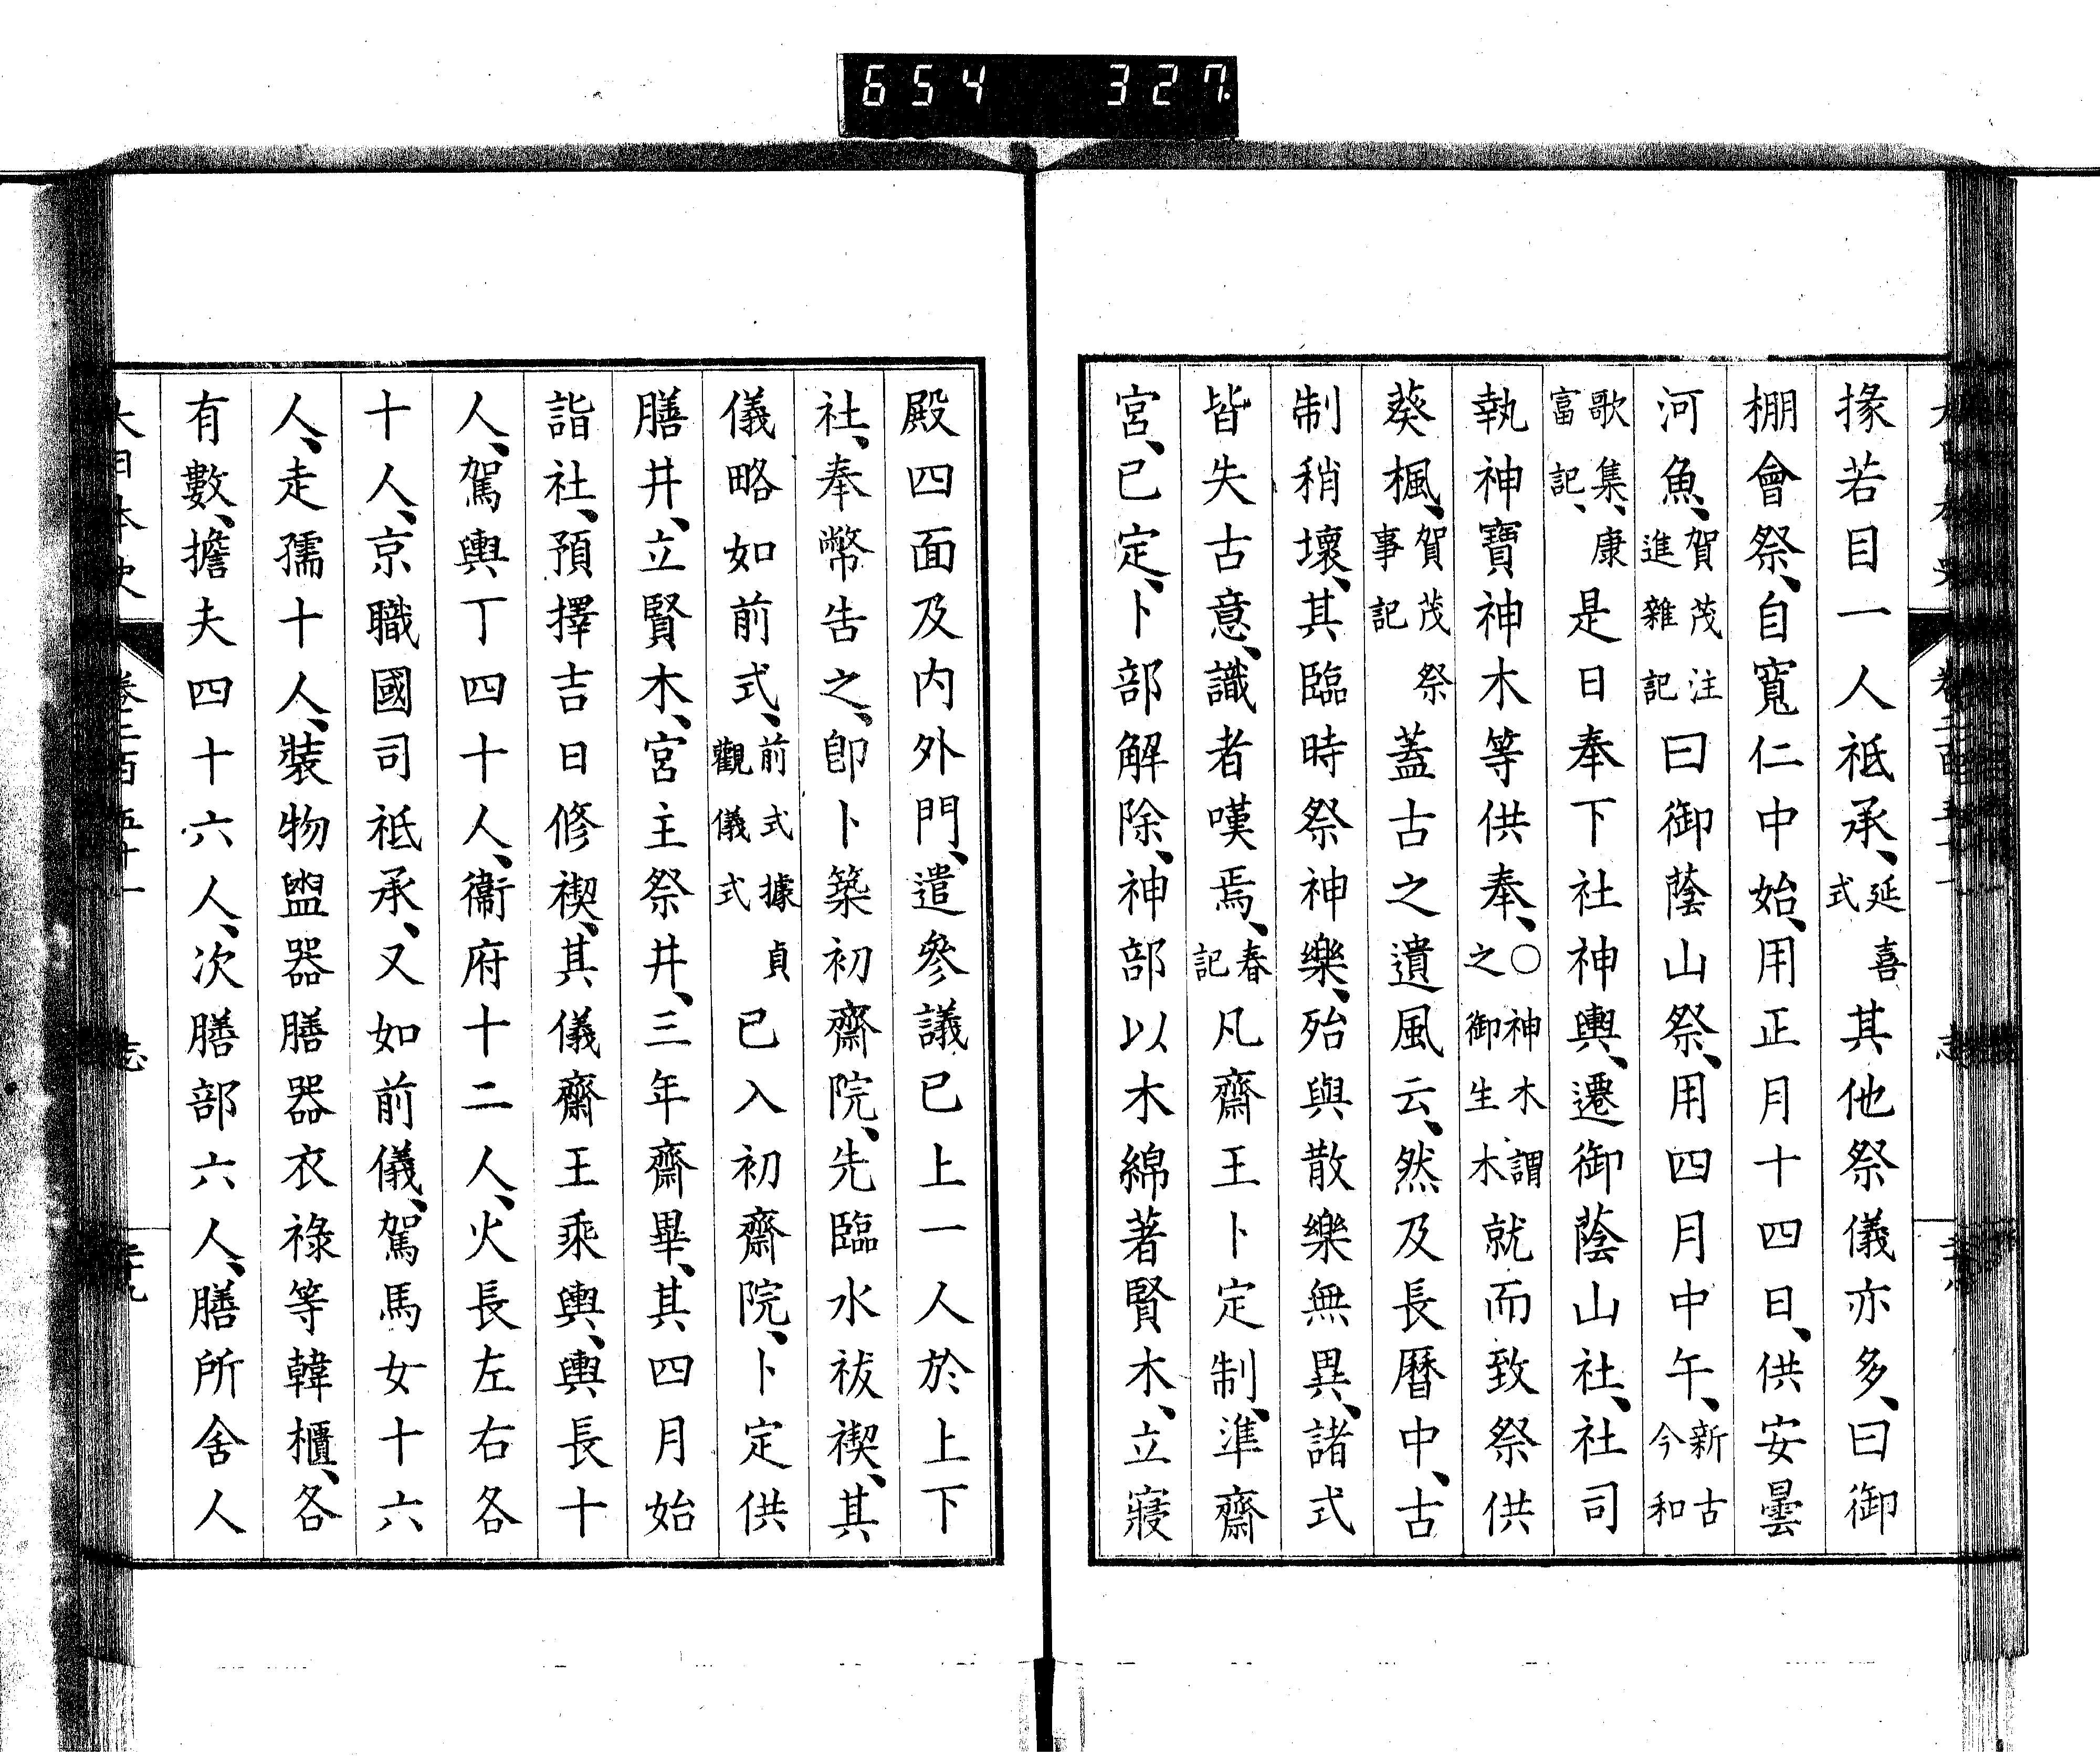 654 327
掾若目一人祇承、延喜式其他祭儀亦多、曰御
棚會祭、自寬仁中始、用正月十四日、供安曇
河魚、賀茂注進雜記曰御蔭山祭、用四月中午、新古今和
歌集、康富記、是日奉下社神輿、遷御蔭山社、社司
執神寶神木等供奉、○神木謂之御生木就而致祭供
葵楓、賀茂祭事記蓋古之遺風云、然及長曆中、古
制稍壞、其臨時祭神樂、殆與散樂無異、諸式
皆失古意、識者嘆焉、春記凡齋王卜定制、準齋
宮、已定、卜部解除、神部以木綿著賢木、立寢
殿四面及内外門、遣參議已上一人於上下
社、奉幣告之、卽卜築初齋院、先臨水祓禊、其
儀略如前式、前式據貞觀儀式已入初齋院、卜定供
膳井、立賢木、宮主祭井、三年齋畢、其四月始
詣社、預擇吉日修禊、其儀齋王乘輿、輿長十
人、駕輿丁四十人、衞府十二人、火長左右各
十人、京職國司祇承、又如前儀、駕馬女十六
人、走孺十人、裝物盥器膳器衣祿等韓櫃、各
有數、擔夫四十六人、次膳部六人、膳所舍人